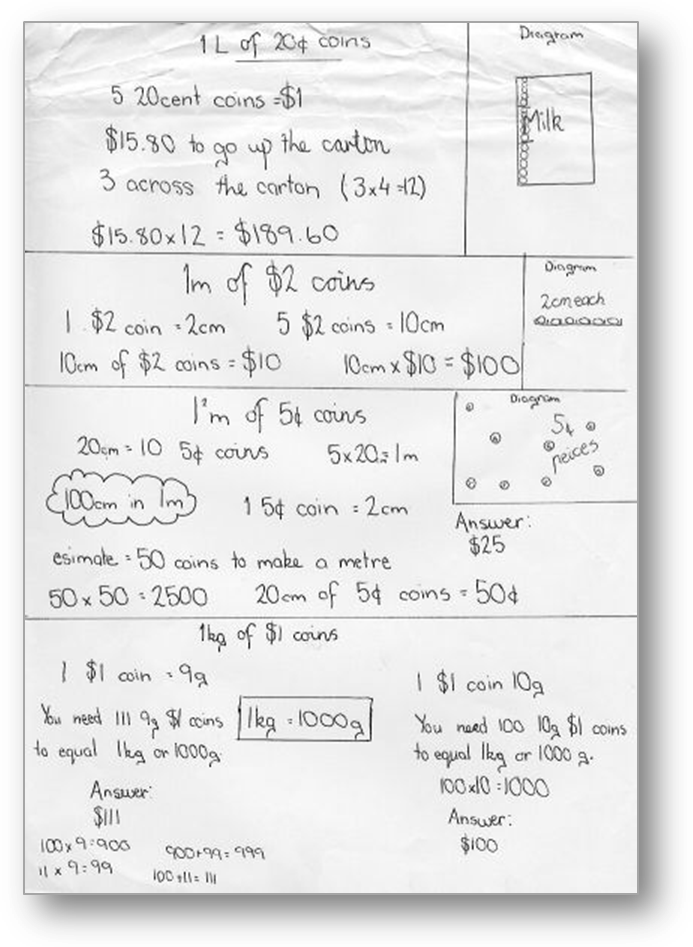 1 L of 20¢ coins
Diagram
5 20cent coins =$1
$15.80 to go up the carton
3 across the carton (3x4=12)
$15.80x12 = $189.60
Milk
1m of $2 coins
Diagram
1 $2 coin = 2cm 5 $2 coins = 10cm
10cm of $2 coins = $10 10cm x $10 = $100
2cm each
1²m of 5¢ coins
Diagram
20cm = 10 5¢ coins 5x20= 1m
5¢
peices
100cm in 1m
1 5¢ coin = 2cm
Answer:
$25
esimate = 50 coins to make a metre
50 x 50 = 2500 20cm of 5¢ coins = 50¢
1kg of $1 coins
1 $1 coin = 9g
You need 111 9g $1 coins
to equal 1kg or 1000g.
1kg = 1000g
Answer:
$111
100x9=900 900+99= 999
11 x 9=99 100+11= 111
1 $1 coin 10g
You need 100 10g $1 coins
to equal 1kg or 1000 g.
100x10=1000
Answer:
$100